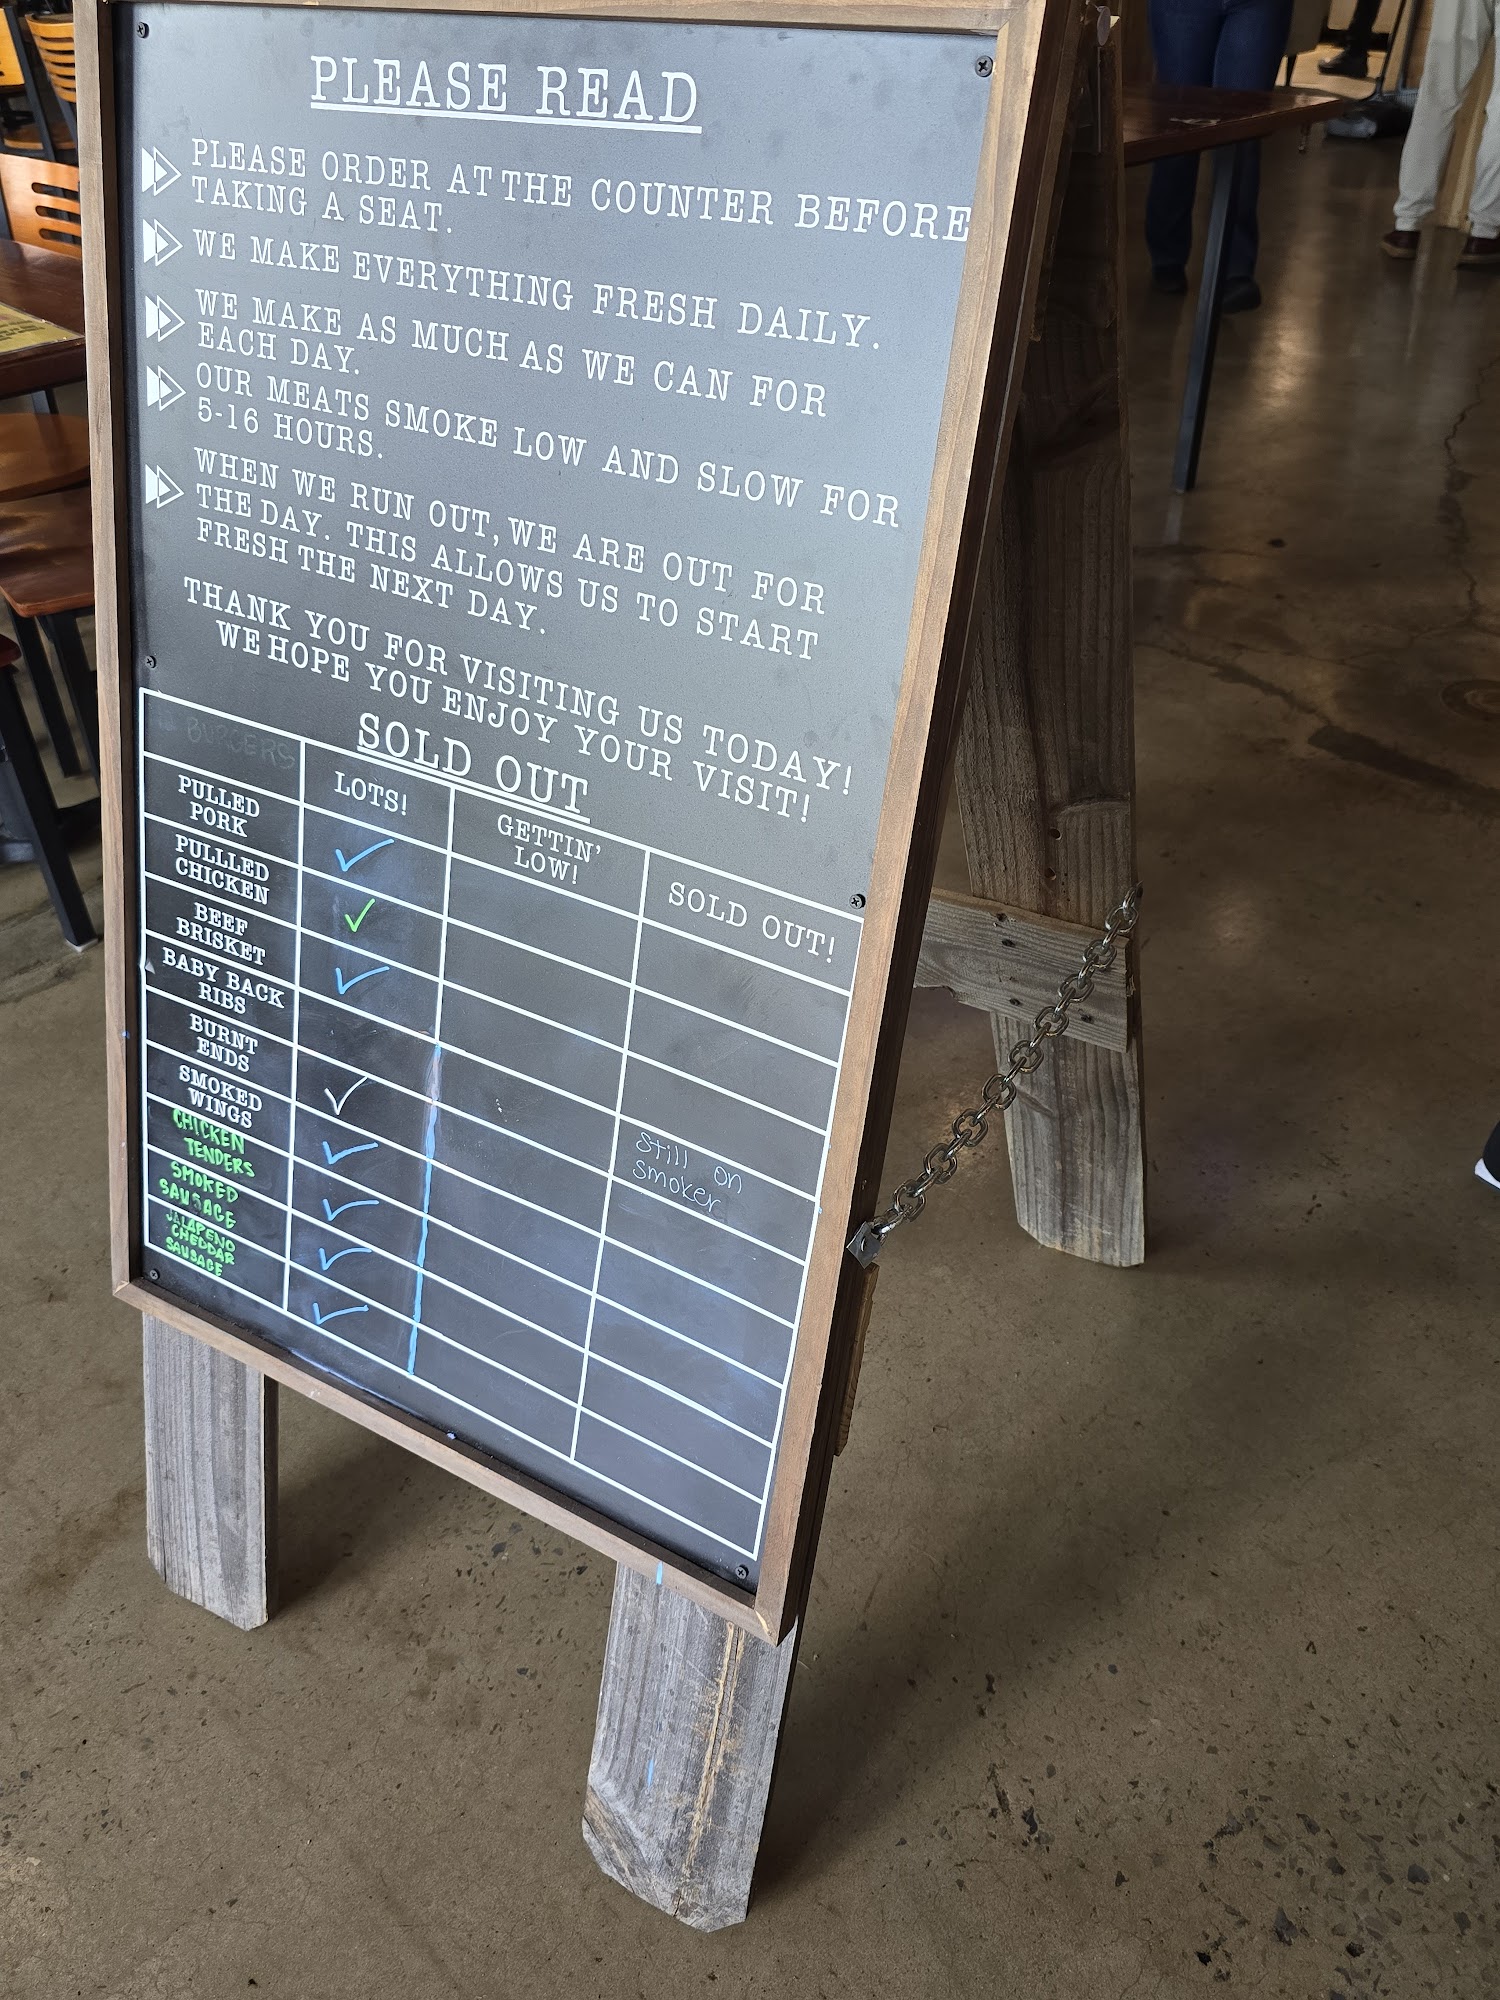 PLEASE READ
PLEASE ORDER AT THE COUNTER BEFORE
TAKING A SEAT.
WE MAKE EVERYTHING FRESH DAILY.
WE MAKE AS MUCH AS WE CAN FOR
EACH DAY.
OUR MEATS SMOKE LOW AND SLOW FOR
5-16 HOURS.
WHEN WE RUN OUT, WE ARE OUT FOR
THE DAY. THIS ALLOWS US TO START
FRESH THE NEXT DAY.
THANK YOU FOR VISITING US TODAY!
WE HOPE YOU ENJOY YOUR VISIT!
SOLD OUT
BURGERS
LOTS!
GETTIN'
LOW!
SOLD OUT!
PULLED
PORK
PULLLED
CHICKEN
BEEF
BRISKET
BABY BACK
RIBS
Still on
smoker
BURNT
ENDS
SMOKED
WINGS
CHICKEN
TENDERS
SMOKED
SAUSAGE
JALAPENO
CHEDDAR
SAUSAGE